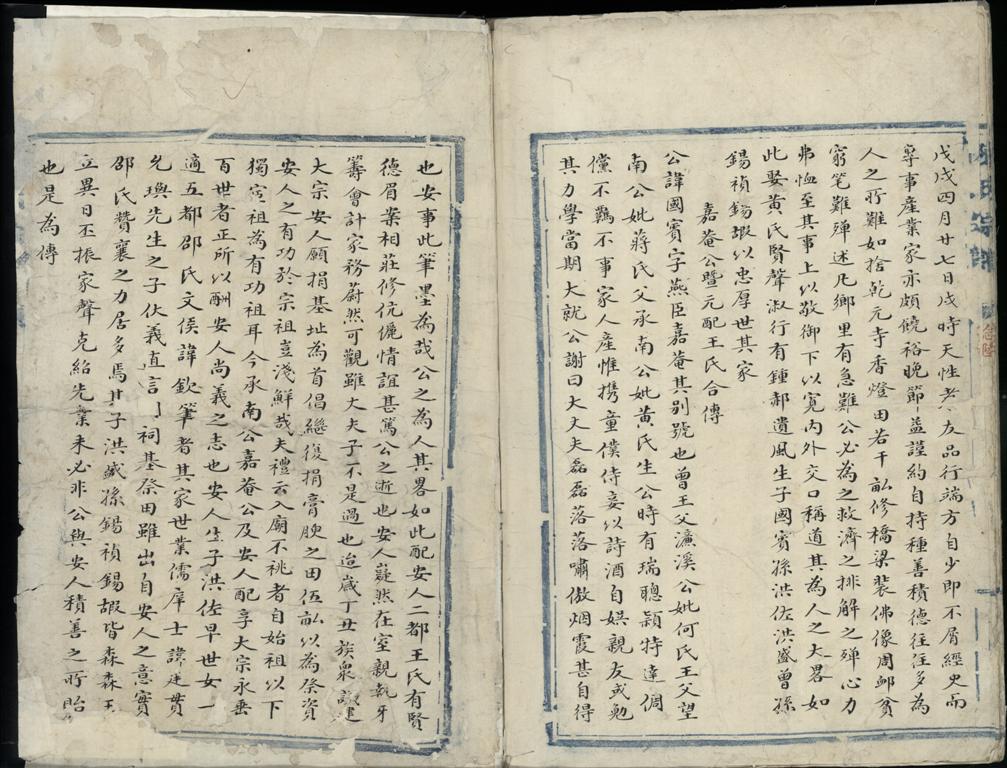 戊戌四月廿七日戌時天性孝友品行端方自少即不屑經史而
專事產業家亦頗饒裕晚節益謹約自持種善積德往往多為
人之所難如捨乾元寺香燈田若干畝修橋梁裝佛像周卹貧
窮笔難殫述凡鄉里有急難公必為之救濟之排解之殫心力
弗恤至其事上以敬御下以寬內外交口稱道其為人之大畧如
此娶黃氏賢聲淑行有鍾郝遺風生子國賓孫洪佐洪盛曾孫
錫禎錫嘏以忠厚世其家
嘉菴公暨元配王氏合傳
公諱國賓字燕臣嘉菴其別號也曾王父濂溪公妣何氏王父望
南公妣蔣氏父承南公妣黃氏生公時有瑞聰穎特達倜
儻不羈不事家人產惟携童僕侍妾以詩酒自娛親友或勉
其力學當期大就公謝曰大丈夫磊磊落落嘯傲烟霞甚自得
也安事此筆墨為哉公之為人其畧如此配安人二都王氏有賢
德眉案相莊修伉儷情誼甚篤公之逝也安人嶷然在室親執牙
籌會計家務蔚然可觀雖大夫子不是過也迨歲丁丑族眾議建
大宗安人願捐基址為首倡繼復捐膏腴之田伍畝以為祭資
安人之有功於宗祖豈淺鮮哉夫禮云入廟不祧者自始祖以下
獨宣祖為有功祖耳今承南公嘉菴公及安人配享大宗永垂
百世者正所以酬安人尚義之志也安人生子洪佐早世女一
適五都邵氏文侯諱欽筆者其家世業儒庠士諱建貫
允璵先生之子伏義直言祠基祭田雖出自安人之意實
邵氏贊襄之力居多焉其子洪盛孫錫禎錫嘏皆森森玉
立異日丕振家聲克紹先業未必非公與安人積善之所貽
也是為傳